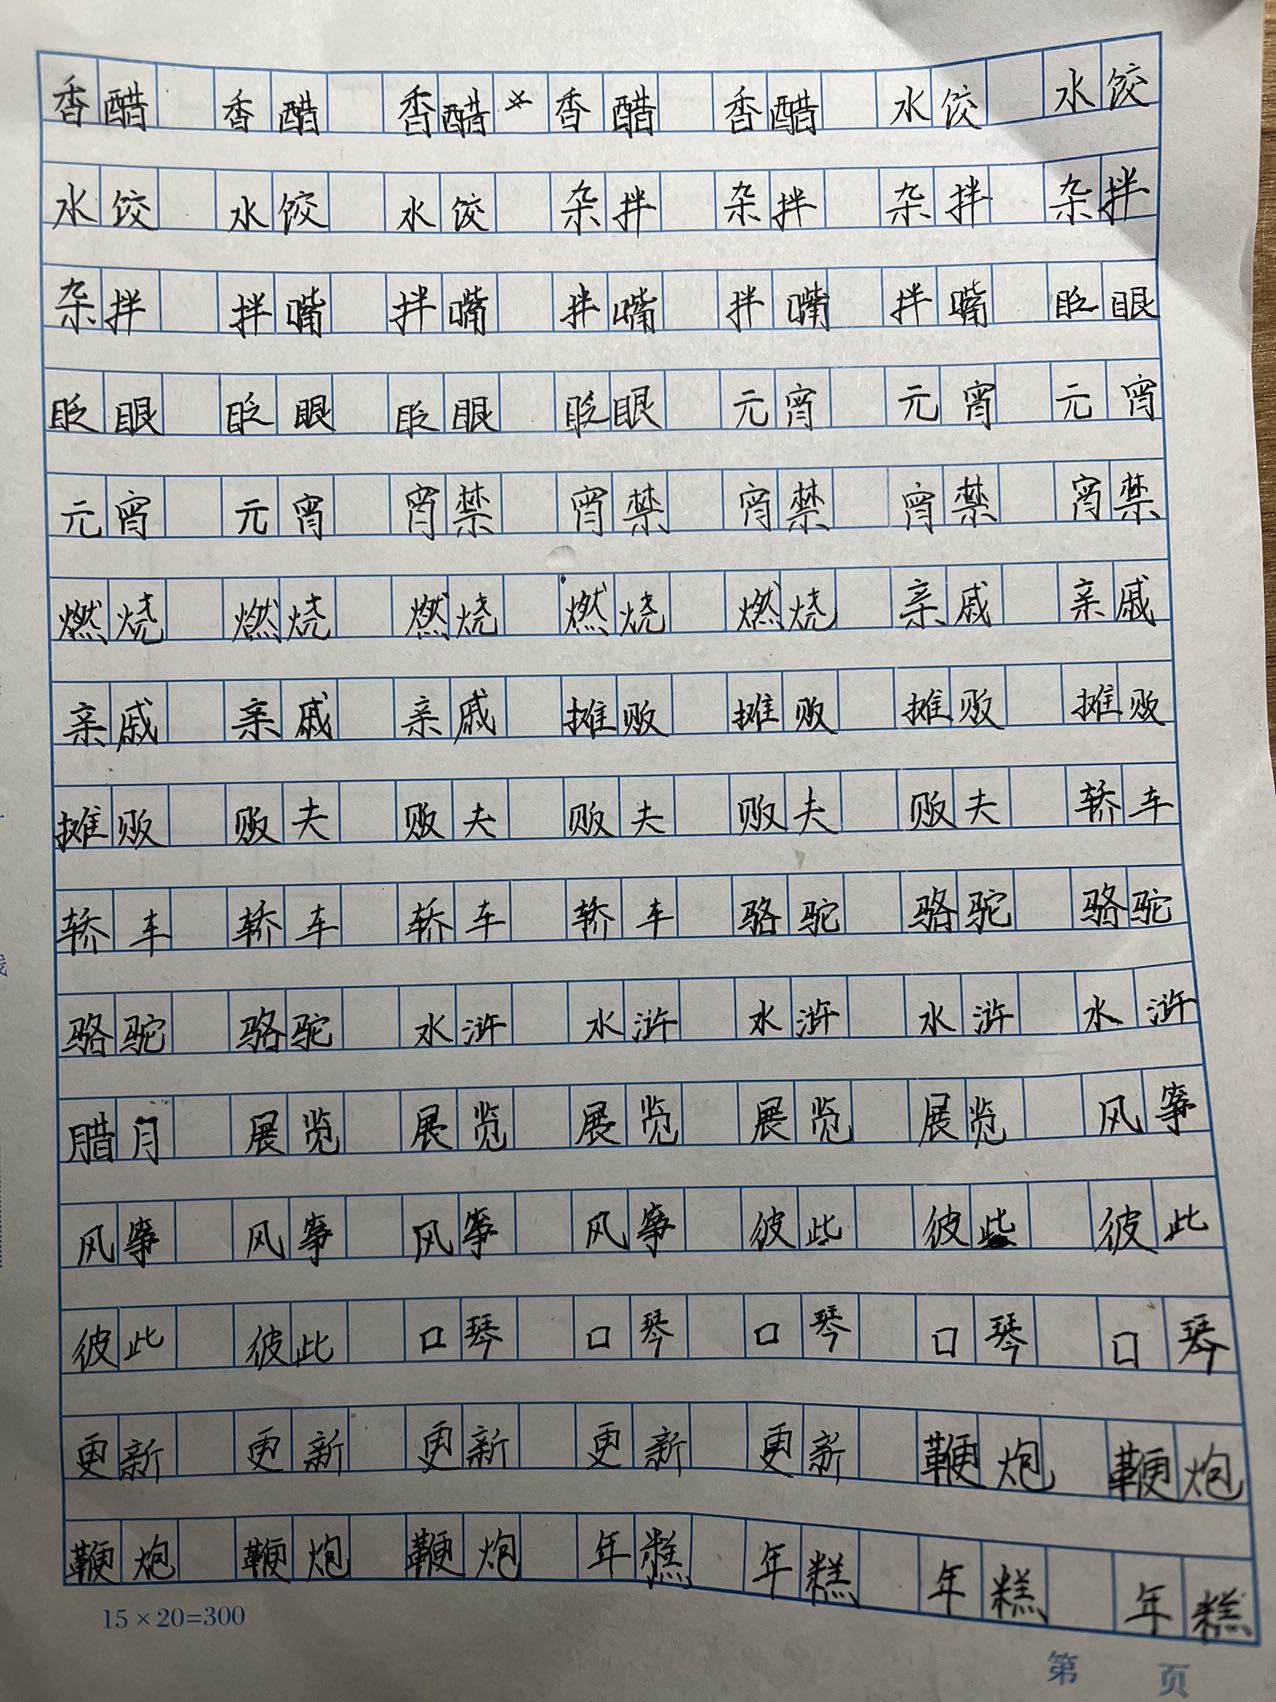 香醋 香醋 香醋 香醋 香醋 水饺 水饺
水饺 水饺 水饺 杂拌 杂拌 杂拌 杂拌
杂拌 拌嘴 拌嘴 拌嘴 拌嘴 拌嘴 眨眼
眨眼 眨眼 眨眼 眨眼 元宵 元宵 元宵
元宵 元宵 宵禁 宵禁 宵禁 宵禁 宵禁
燃烧 燃烧 燃烧 燃烧 燃烧 亲戚 亲戚
亲戚 亲戚 亲戚 摊贩 摊贩 摊贩 摊贩
摊贩 贩夫 贩夫 贩夫 贩夫 贩夫 轿车
轿车 轿车 轿车 轿车 骆驼 骆驼 骆驼
骆驼 骆驼 水浒 水浒 水浒 水浒 水浒
腊月 展览 展览 展览 展览 展览 风筝
风筝 风筝 风筝 风筝 彼此 彼此 彼此
彼此 彼此 口琴 口琴 口琴 口琴 口琴
更新 更新 更新 更新 更新 鞭炮 鞭炮
鞭炮 鞭炮 鞭炮 年糕 年糕 年糕 年糕
15×20=300
第 页